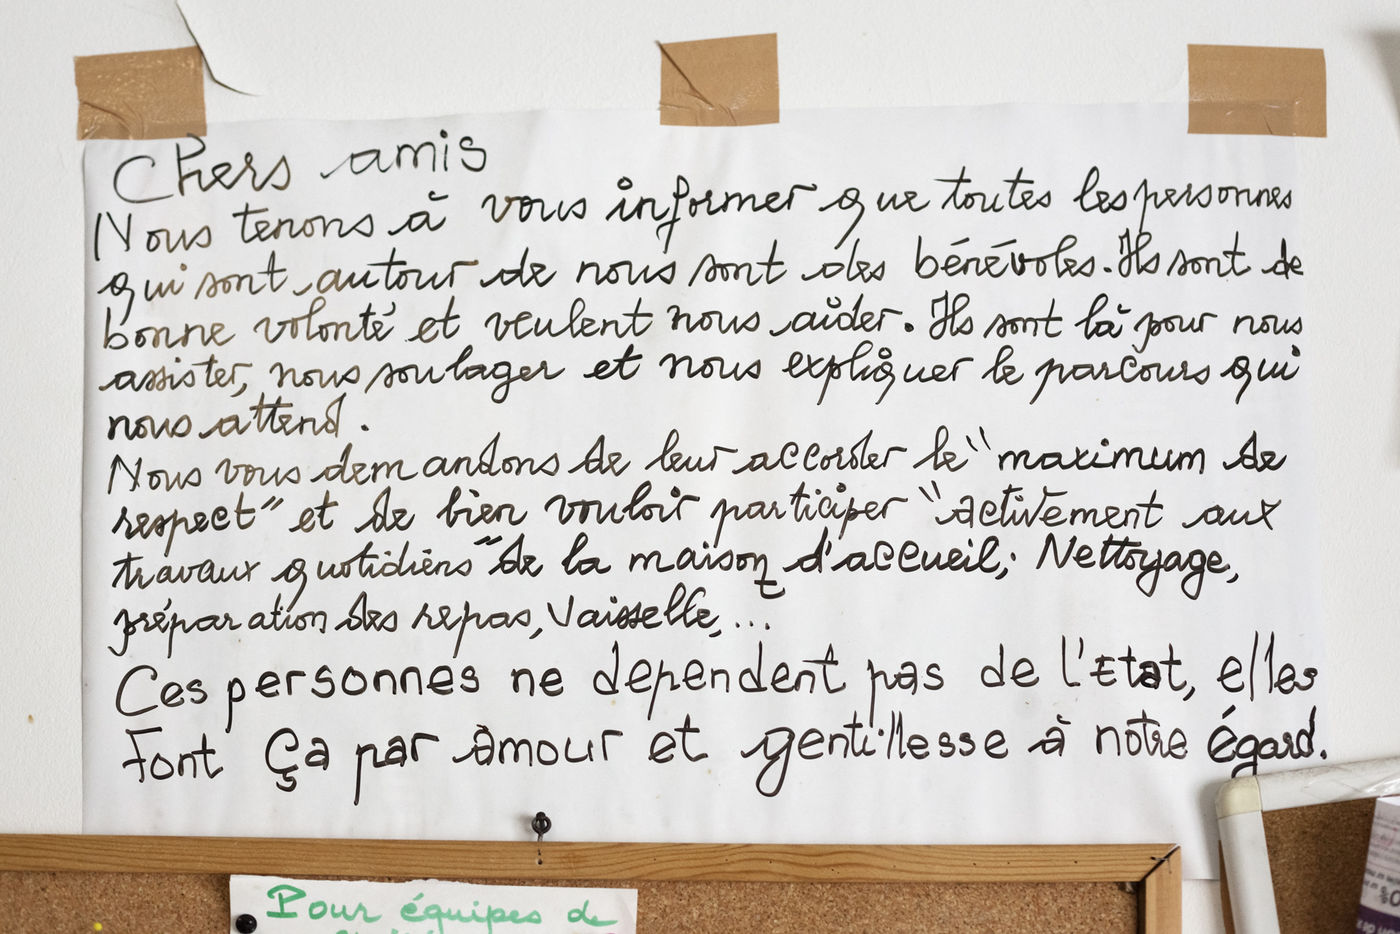 Chers amis
Nous tenons à vous informer que toutes les personnes
qui sont autour de nous sont des bénévoles. Ils sont de
bonne volonté et veulent nous aider. Ils sont là pour nous
assister, nous soulager et nous expliquer le parcours qui
nous attend.
Nous vous demandons de leur accorder le "maximum de
respect" et de bien vouloir participer "activement aux
travaux quotidiens" de la maison d'accueil; Nettoyage,
préparation des repas, Vaisselle, ...
Ces personnes ne dependent pas de l'Etat, elles
Font ça par amour et gentillesse à notre égard.
Pour équipes de